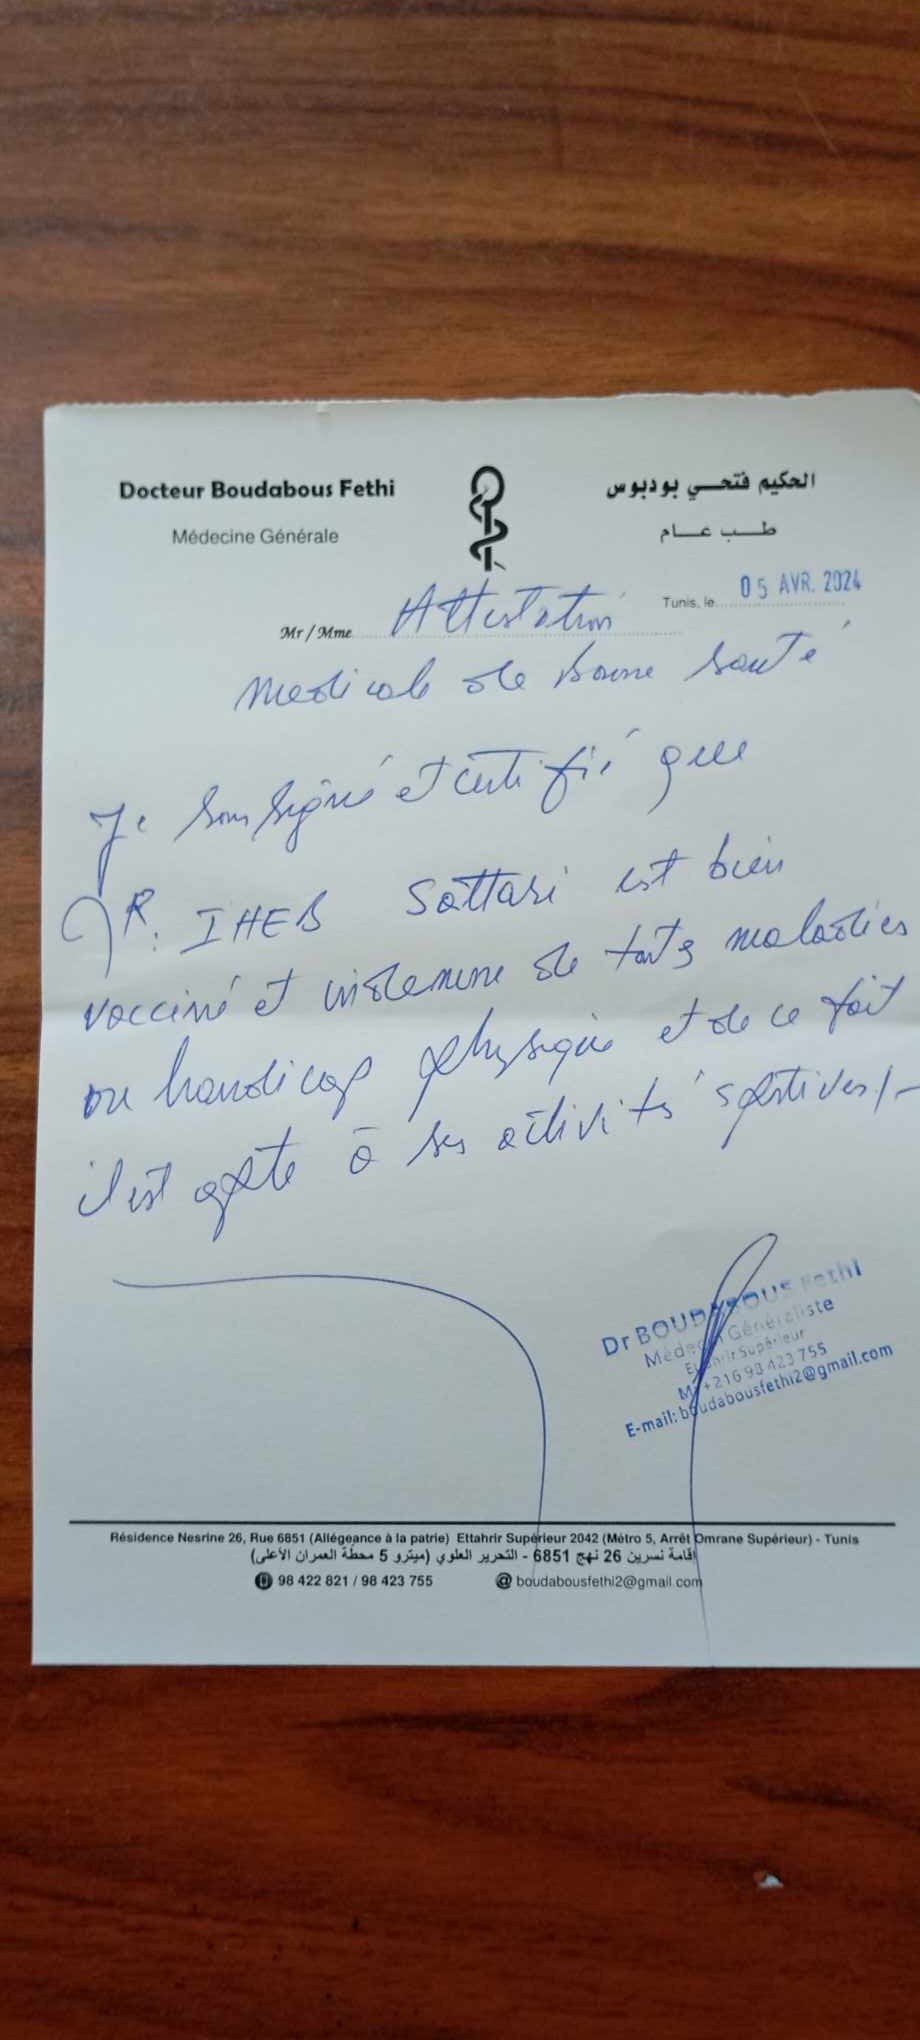 Docteur Boudabous Fethi
Médecine Générale
الحكيم فتحي بودبوس
طب عام
Tunis, le 05 AVR. 2024
Mr / Mme Attestation
medicale de bonne santé
Je soussigné et certifié que
Mr. IHEB Sattari est bien
vacciné et indemne de touts maladies
ou handicap physique et de ce fait
il est apte à ses activités sportives/-
Dr BOUDABOUS Fethi
Médecin Généraliste
Ettahrir Supérieur
M: +216 98 423 755
E-mail: boudabousfethi2@gmail.com
Résidence Nesrine 26, Rue 6851 (Allégeance à la patrie) Ettahrir Supérieur 2042 (Métro 5, Arrêt Omrane Supérieur) - Tunis
إقامة نسرين 26 نهج 6851 - التحرير العلوي (ميترو 5 محطة العمران الأعلى)
98 422 821 / 98 423 755 @ boudabousfethi2@gmail.com